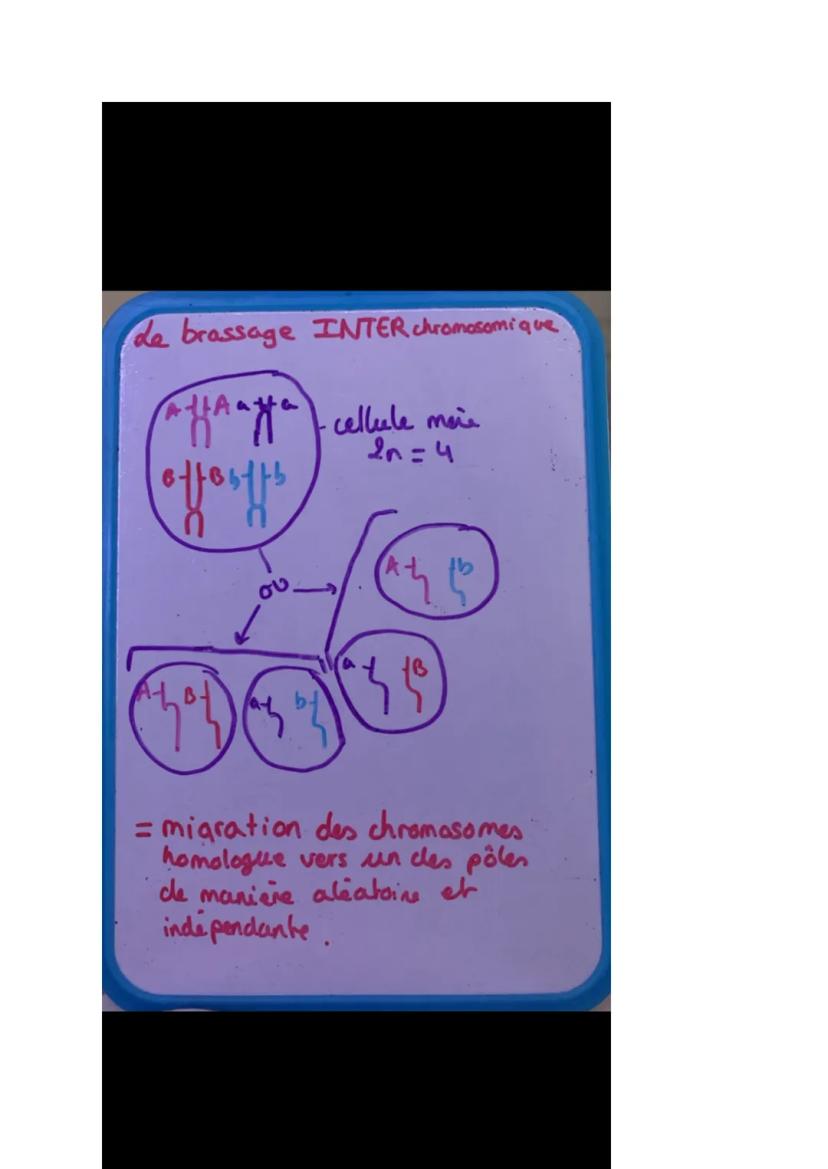 Le brassage INTERchromosomique
A A a a
cellule mère
2n = 4
B B b b
A b
ou
a B
A B a b
= migration des chromosomes
homologue vers un des pôles
de manière aléatoire et
indépendante.